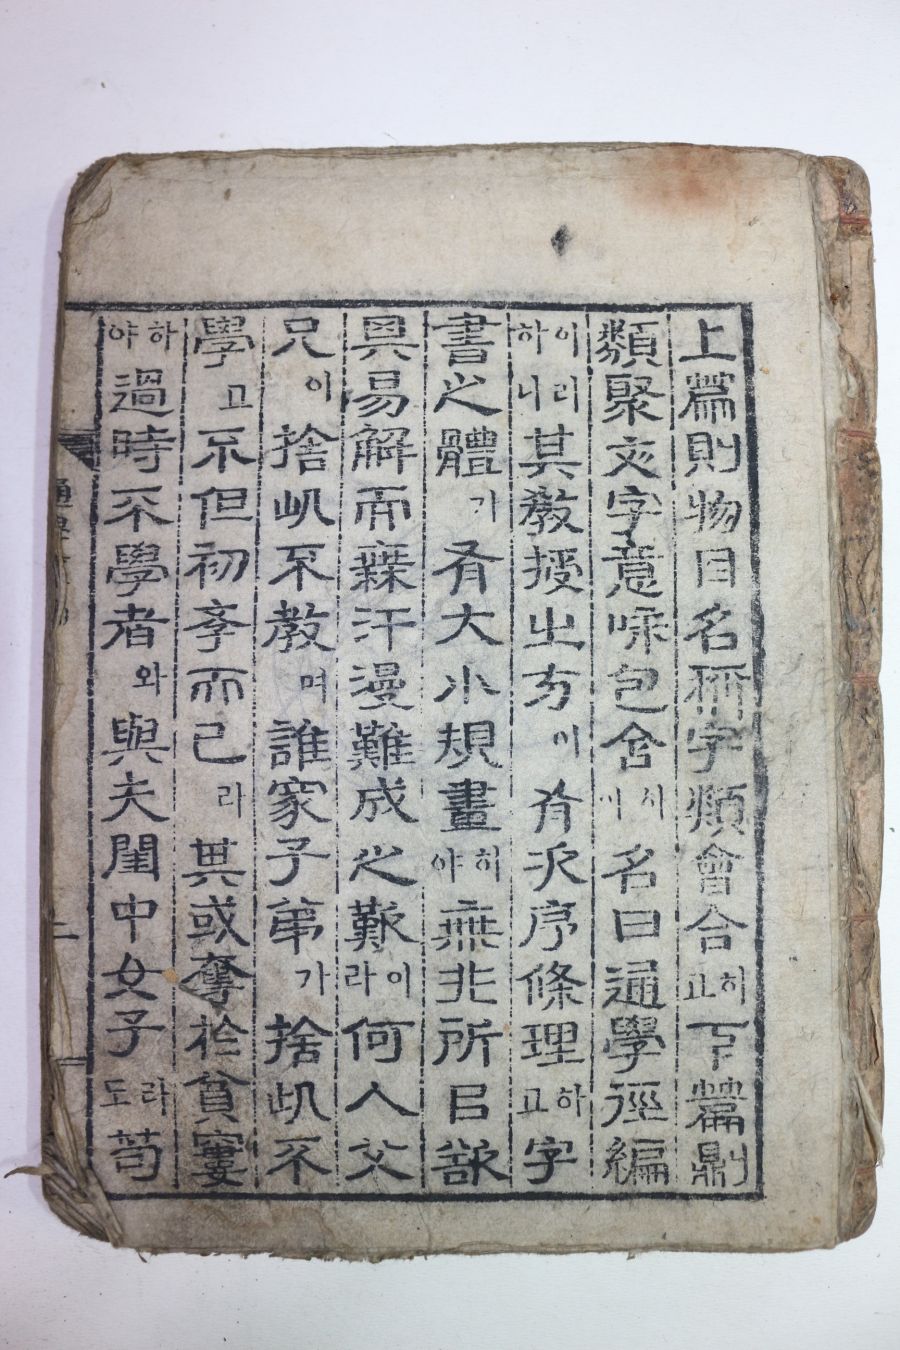 上篇則物目名稱字類會合히고下篇則
類聚文字意味包含시이名曰通學徑編
이리하니其敎授之方이有次序條理하고字
書之體가有大小規畫히야無非所以欲
其易解而無汗漫難成之歎이라何人父
兄이捨此不敎며誰家子弟가捨此不
學고不但初學而已라其或奪於貧窶
하야過時不學者와與夫閨中女子라도苟